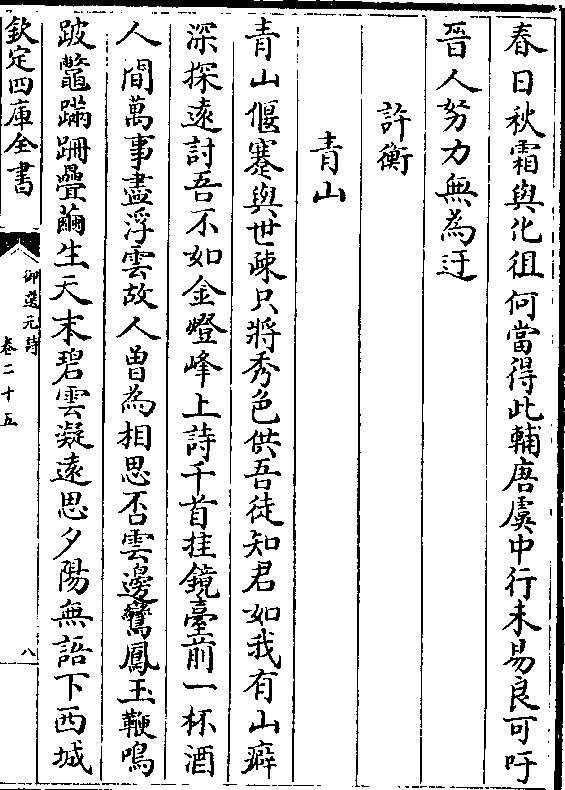 春日秋霜與化徂何當得此輔唐虞中行未易良可吁
晉人努力無為迂
許衡
青山
青山偃蹇與世疎只將秀色供吾徒知君如我有山癖
深探遠討吾不如金燈峰上詩千首挂鏡臺前一杯酒
人間萬事盡浮雲故人曾為相思否雲邊鸞鳳玉鞭鳴
跛鼈蹣跚疊繭生天末碧雲凝遠思夕陽無語下西城
欽定四庫全書
御選元詩
卷二十五
八